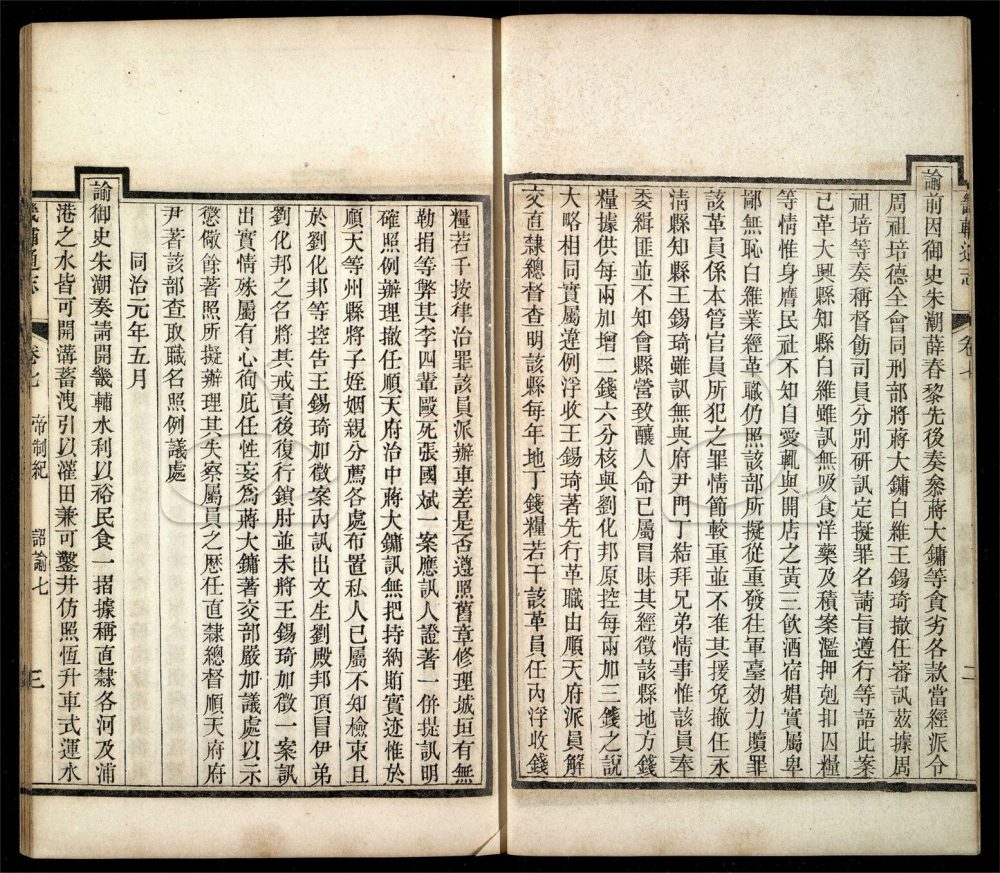 諭前因御史朱潮薛春黎先後奏叅蔣大鏞等貪劣各款當經派令
周祖培德全會同刑部將蔣大鏞白維王錫琦撤任審訊茲據周
祖培等奏稱督飭司員分別研訊定擬罪名請旨遵行等語此案
已革大興縣知縣白維雖訊無吸食洋藥及積案濫押剋扣囚糧
等情惟身膺民社不知自愛輒與開店之黃三飲酒宿娼實屬卑
鄙無恥白維業經革職仍照該部所擬從重發往軍臺効力贖罪
該革員係本管官員所犯之罪情節較重並不准其援免撤任永
淸縣知縣王錫琦雖訊無與府尹門丁結拜兄弟情事惟該員奉
委緝匪並不知會縣營致釀人命已屬冒昧其經徵該縣地方錢
糧據供每兩加增二錢六分核與劉化邦原控每兩加三錢之說
大略相同實屬違例浮收王錫琦著先行革職由順天府派員解
交直隸總督查明該縣每年地丁錢糧若干該革員任內浮收錢
卷七
二
糧若干按律治罪該員派辦車差是否遵照舊章修理城垣有無
勒捐等弊其李四輩毆死張國斌一案應訊人證著一併提訊明
確照例辦理撤任順天府治中蔣大鏞訊無把持納賄實迹惟於
順天等州縣將子姪姻親分薦各處布置私人已屬不知檢束且
於劉化邦等控告王錫琦加徵案內訊出文生劉殿邦頂冒伊弟
劉化邦之名將其戒責後復行鎖肘並未將王錫琦加徵一案訊
出實情殊屬有心徇庇任性妄爲蔣大鏞著交部嚴加議處以示
懲儆餘著照所擬辦理其失察屬員之歷任直隸總督順天府府
尹著該部查取職名照例議處
同治元年五月
諭御史朱潮奏請開畿輔水利以裕民食一摺據稱直隸各河及浦
港之水皆可開溝蓄洩引以灌田兼可鑿井仿照恆升車式運水
畿輔通志
卷七
帝制紀
詔諭七
三